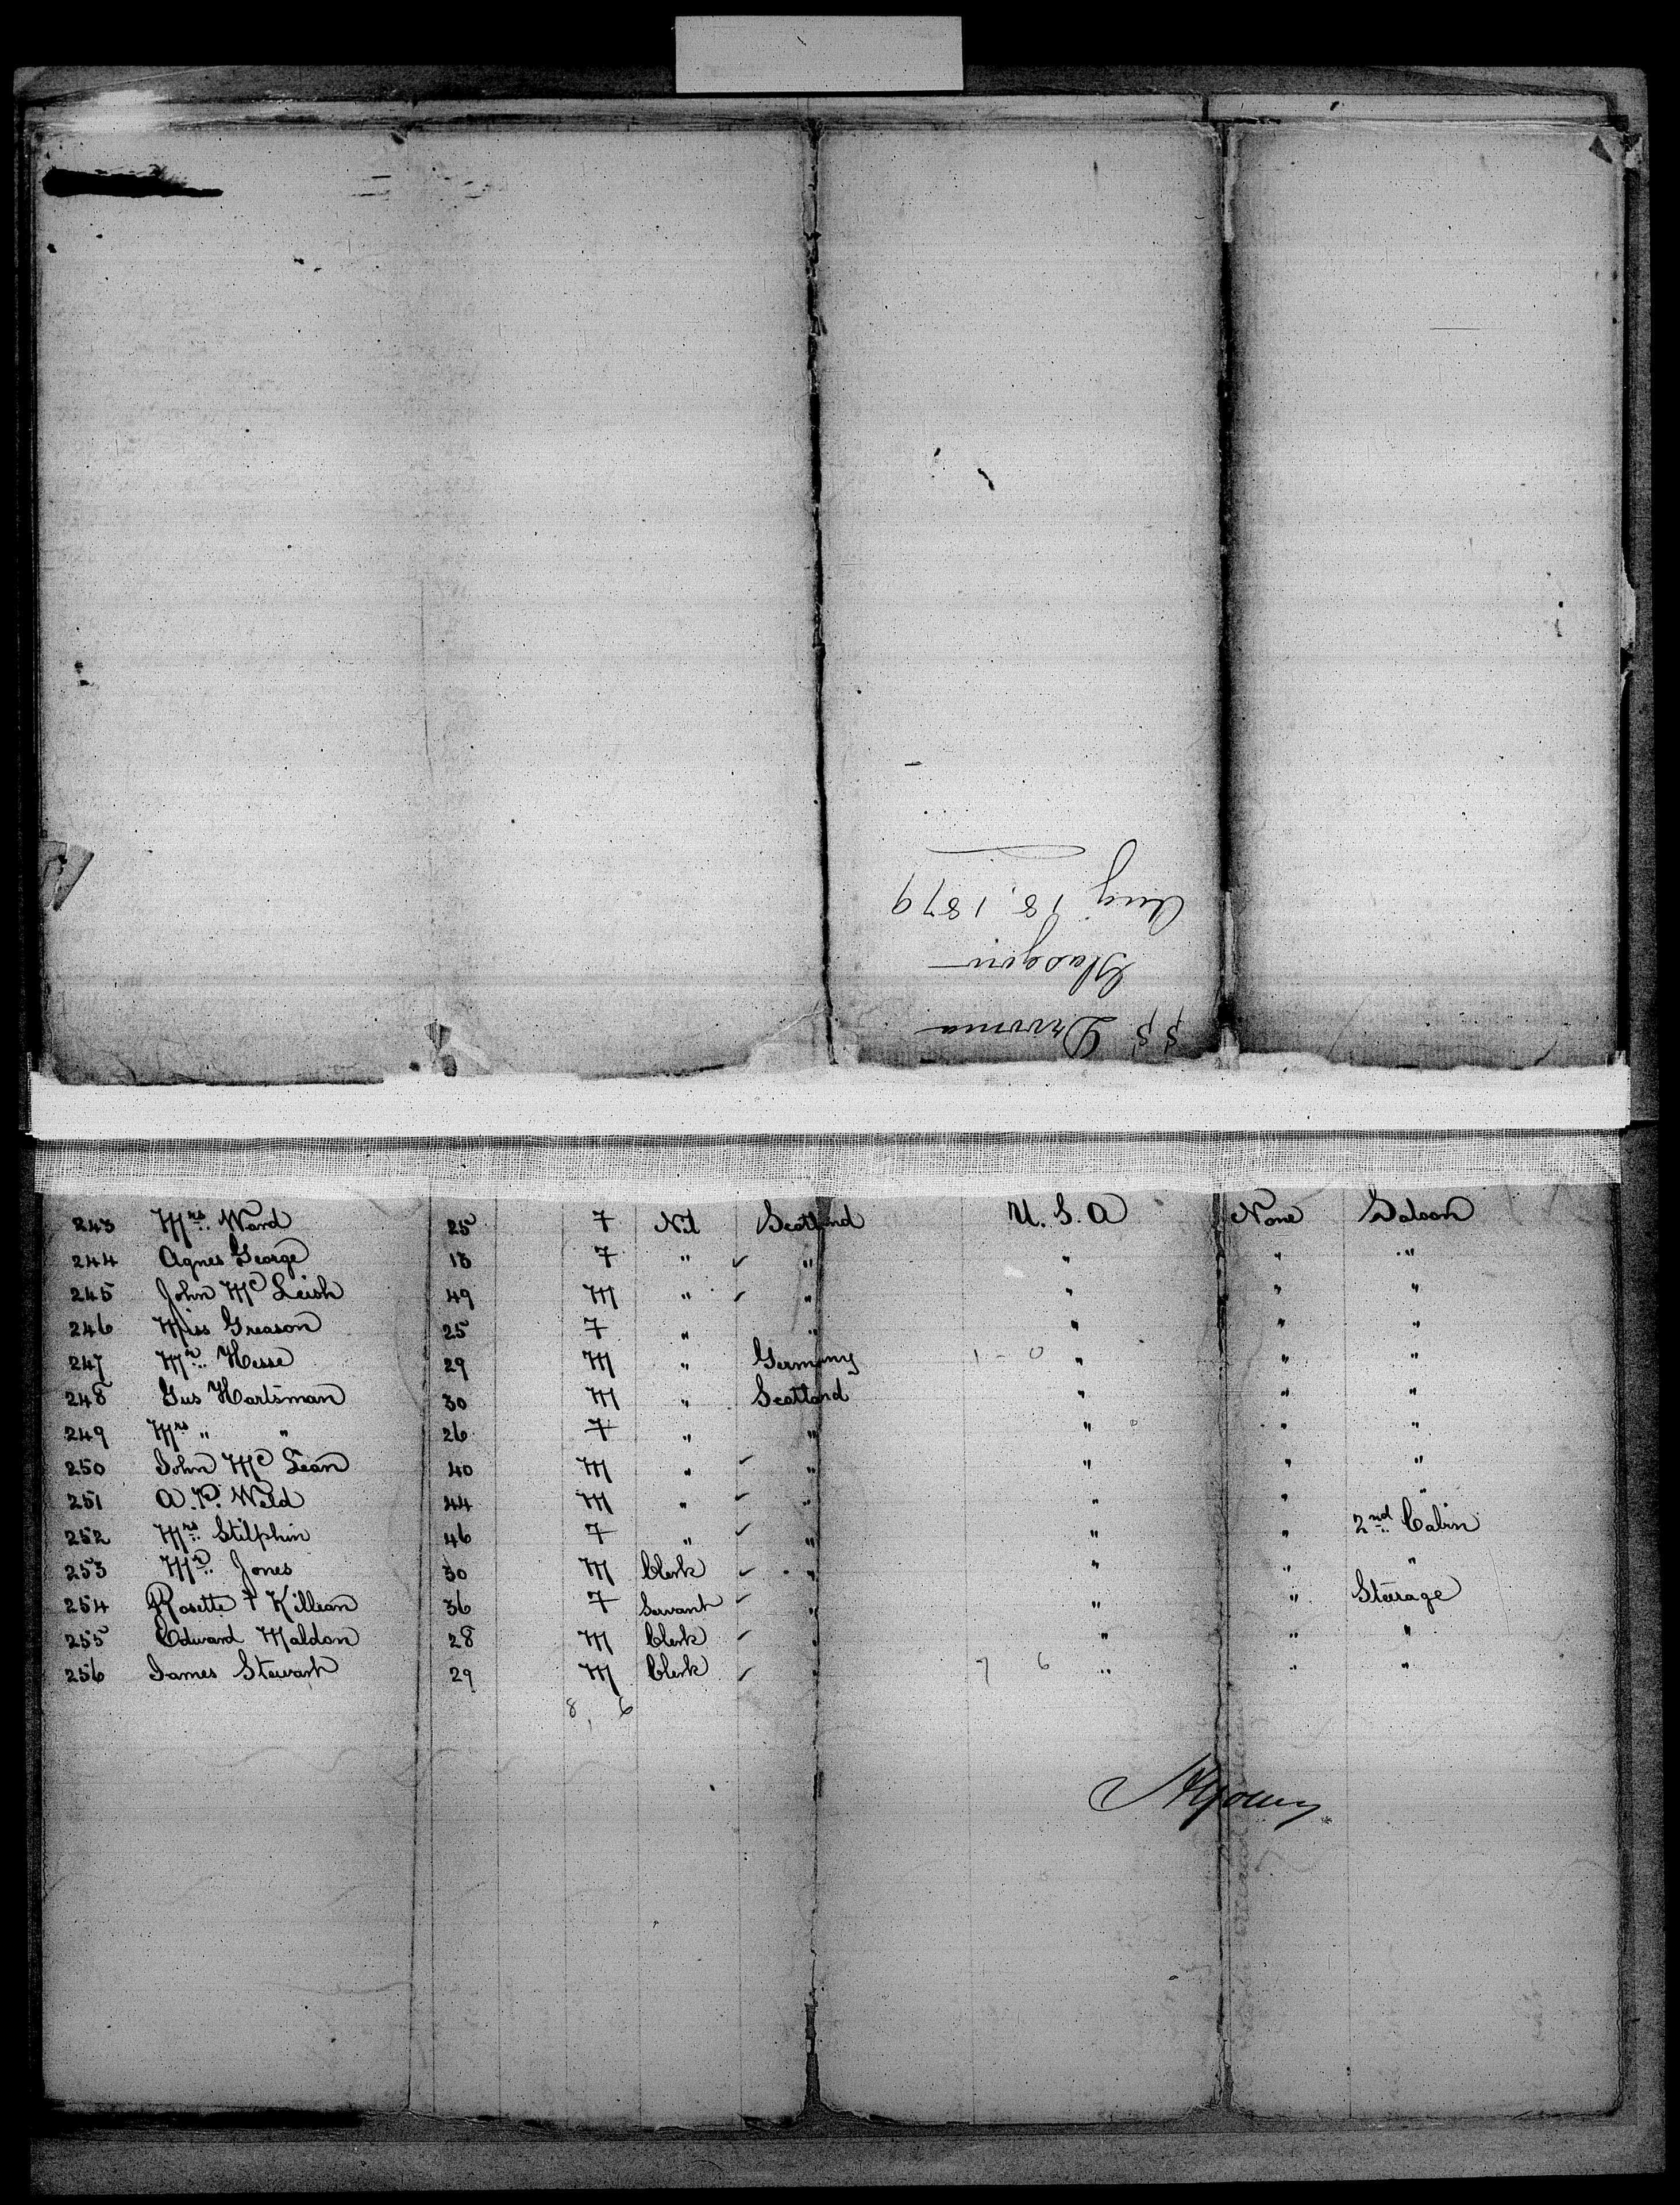 SS Devonia
Glasgow
Aug 18, 1879
243 Mrs. Ward 25 F Nil Scotland U. S. A None Saloon
244 Agnes George 18 F " ✓ " " " "
245 John Mc Leish 49 M " ✓ " " " "
246 Miss Greason 25 F " " " " "
247 Mr. Hesse 29 M " Germany 1 - 0 " " "
248 Gus Hartsman 30 M " Scotland " " "
249 Mrs " " 26 F " " " " "
250 John Mc Lean 40 M " ✓ " " " "
251 A. P. Weld 44 M " ✓ " " " "
252 Mrs. Stilphin 46 F " ✓ " " " 2nd Cabin
253 Mr. Jones 30 M Clerk ✓ " " " "
254 Rosette F Killean 36 F Servant ✓ " " " Steerage
255 Edward Maldon 28 M Clerk ✓ " " " "
256 James Stewart 29 M Clerk ✓ " 7 6 " " "
8, 6